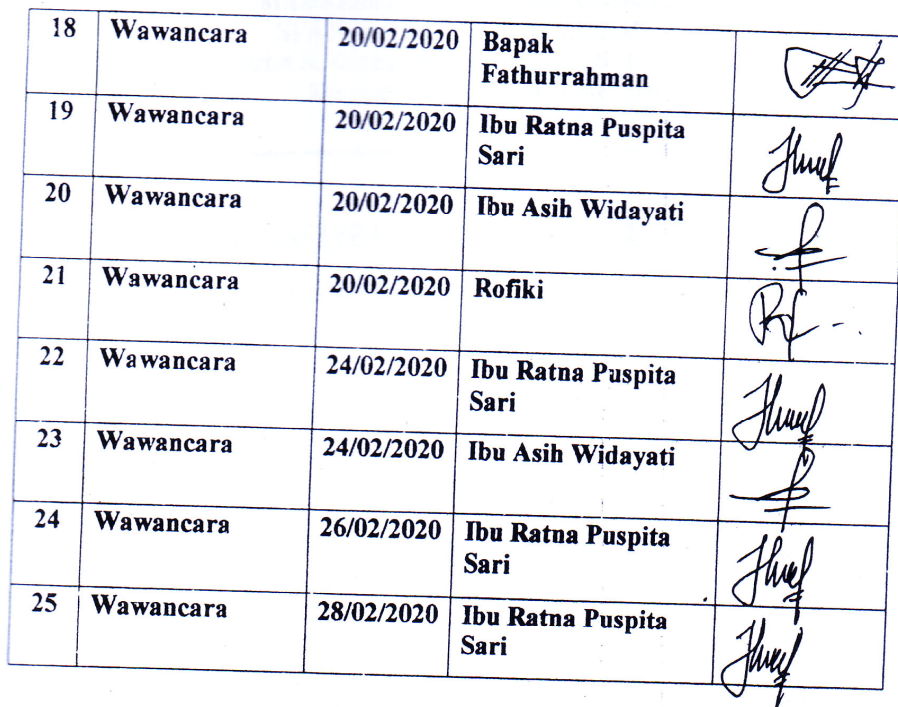 18 Wawancara 20/02/2020 Bapak
Fathurrahman
19 Wawancara 20/02/2020 Ibu Ratna Puspita
Sari
20 Wawancara 20/02/2020 Ibu Asih Widayati
21 Wawancara 20/02/2020 Rofiki
22 Wawancara 24/02/2020 Ibu Ratna Puspita
Sari
23 Wawancara 24/02/2020 Ibu Asih Widayati
24 Wawancara 26/02/2020 Ibu Ratna Puspita
Sari
25 Wawancara 28/02/2020 Ibu Ratna Puspita
Sari